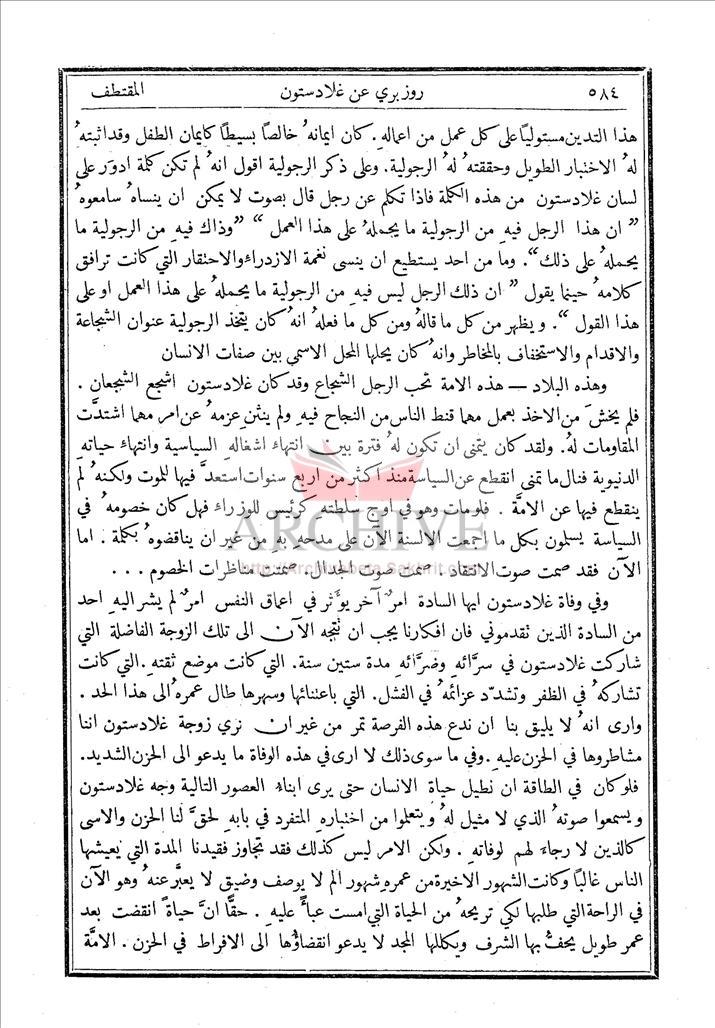 ٥٨٤ روزبري عن غلادستون المقتطف
هذا التدين مستوليًا على كل عمل من اعماله ِ. كان ايمانه ُ خالصًا بسيطًا كايمان الطفل وقد اثبته ُ
له ُ الاختبار الطويل وحققته ُ له ُ الرجولية. وعلى ذكر الرجولية اقول انه ُ لم تكن كلمة ادوَر على
لسان غلادستون من هذه الكلمة فاذا تكلم عن رجل قال بصوت لا يمكن ان ينساه ُ سامعوه ُ
” ان هذا الرجل فيهِ من الرجولية ما يحمله ُ على هذا العمل “ ” وذاك فيهِ من الرجولية ما
يحمله ُ على ذلك “. وما من احد يستطيع ان ينسى نغمة الازدراء والاحتقار التي كانت ترافق
كلامه ُ حينما يقول ” ان ذلك الرجل ليس فيهِ من الرجولية ما يحمله ُ على هذا العمل او على
هذا القول “. ويظهر من كل ما قاله ُ ومن كل ما فعله ُ انه ُ كان يتخذ الرجولية عنوان الشجاعة
والاقدام والاستخفاف بالمخاطر وانه ُ كان يحلها المحل الاسمى بين صفات الانسان
وهذه البلاد — هذه الامة تحب الرجل الشجاع وقد كان غلادستون اشجع الشجعان .
فلم يخشَ من الاخذ بعمل مهما قنط الناس من النجاح فيهِ ولم ينثنِ عزمه ُ عن امر مهما اشتدَّت
المقاومات له ُ. ولقد كان يتمنى ان تكون له ُ فترة بين انتهاء اشغالهِ السياسية وانتهاء حياتهِ
الدنيوية فنال ما تمنى انقطع عن السياسة منذ اكثر من اربع سنوات استعدَّ فيها للموت ولكنه ُ لم
ينقطع فيها عن الامَّة . فلومات وهو في اوج سلطتهِ كرئيس للوزراء فهل كان خصومه ُ في
السياسة يسلمون بكل ما اجمعت الالسنة الآن على مدحهِ بهِ من غير ان يناقضوه ُ بكلمة . اما
الآن فقد صمت صوت الانتقاد . صمت صوت الجدال. صمتت مناظرات الخصوم . . .
وفي وفاة غلادستون ايها السادة امرٌ آخر يؤثر في اعماق النفس امرٌ لم يشر اليهِ احد
من السادة الذين تقدموني فان افكارنا يجب ان تتجه الآن الى تلك الزوجة الفاضلة التي
شاركت غلادستون في سرَّائهِ وضرَّائهِ مدة ستين سنة. التي كانت موضع ثقتهِ. التي كانت
تشاركه ُ في الظفر وتشدّد عزائمه ُ في الفشل. التي باعتنائها وسهرها طال عمره ُ الى هذا الحد .
وارى انه ُ لا يليق بنا ان ندع هذه الفرصة تمر من غير ان نري زوجة غلادستون اننا
مشاطروها في الحزن عليهِ. وفي ما سوى ذلك لا ارى في هذه الوفاة ما يدعو الى الحزن الشديد.
فلو كان في الطاقة ان نطيل حياة الانسان حتى يرى ابناء العصور التالية وجه غلادستون
ويسمعوا صوته ُ الذي لا مثيل له ُ ويتعلموا من اختبارهِ المتفرد في بابهِ لحقَّ لنا الحزن والاسى
كالذين لا رجاء لهم لوفاتهِ . ولكن الامر ليس كذلك فقد تجاوز فقيدنا المدة التي يعيشها
الناس غالبًا وكانت الشهور الاخيرة من عمرهِ شهور الم لا يوصف وضيق لا يعبَّر عنه ُ وهو الآن
في الراحة التي طلبها لكي تريحه ُ من الحياة التي امست عبأً عليهِ . حقًّا انَّ حياةً انقضت بعد
عمر طويل يحفُّ بها الشرف ويكللها المجد لا يدعو انقضاؤها الى الافراط في الحزن . الامَّة
ARCHIVE